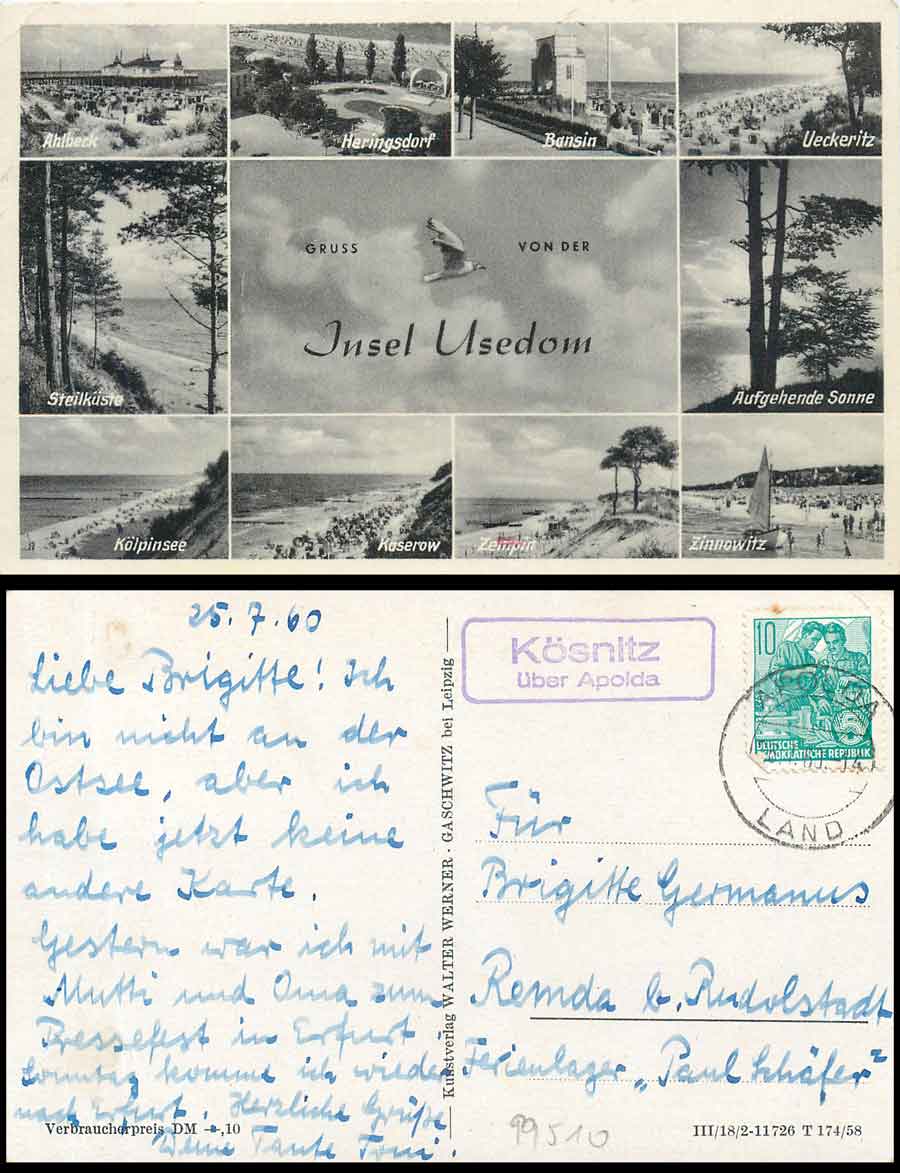 Ahlbeck
Heringsdorf
Bansin
Ueckeritz
GRUSS VON DER
Insel Usedom
Steilküste
Aufgehende Sonne
Kölpinsee
Koserow
Zempin
Zinnowitz
25.7.60
Liebe Brigitte! Ich
bin nicht an der
Ostsee, aber ich
habe jetzt keine
andere Karte.
Gestern war ich mit
Mutti und Oma zum
Pressefest in Erfurt
Sonntag komme ich wieder
nach Erfurt. Herzliche Grüße
Deine Tante Toni.
Verbraucherpreis DM —,10
Kunstverlag WALTER WERNER · GASCHWITZ bei Leipzig
Kösnitz
über Apolda
10
DEUTSCHE
DEMOKRATISCHE REPUBLIK
LAND
Für
Brigitte Germanus
Remda b. Rudolstadt
Ferienlager „Paul Schäfer"
99510
III/18/2-11726 T 174/58